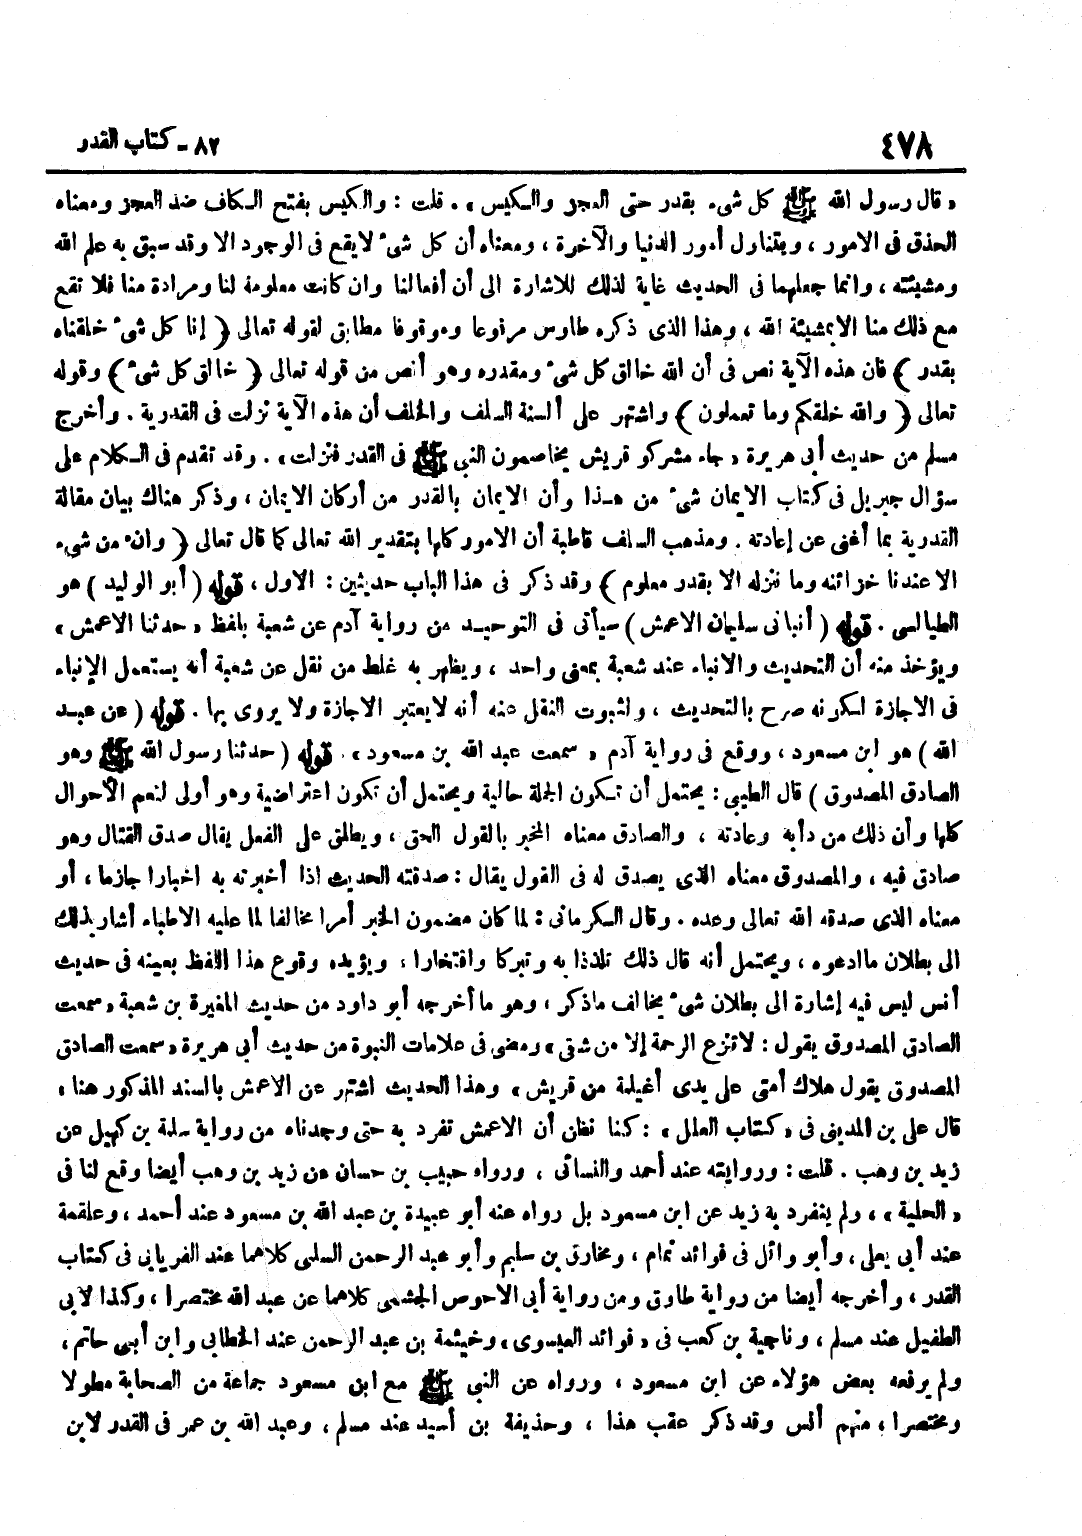 ٤٧٨
٨٢ - كتاب القدر
« قال رسول الله ﷺ كل شىء بقدر حتى العجز والكيس » . قلت : والكيس بفتح الكاف ضد العجز ومعناه
الحذق فى الامور ، ويتناول أمور الدنيا والآخرة ، ومعناه أن كل شىء لايقع فى الوجود الا وقد سبق به علم الله
ومشيئته ، وانما جعلهما فى الحديث غاية لذلك للاشارة الى أن أفعالنا وان كانت معلومة لنا ومرادة منا فلا تقع
مع ذلك منا الا بمشيئة الله ، وهذا الذى ذكره طاوس مرفوعا وموقوفا مطابق لقوله تعالى ﴿ إنا كل شىء خلقناه
بقدر ﴾ فان هذه الآية نص فى أن الله خالق كل شىء ومقدره وهو أنص من قوله تعالى ﴿ خالق كل شىء ﴾ وقوله
تعالى ﴿ والله خلقكم وما تعملون ﴾ واشتهر على ألسنة السلف والخلف أن هذه الآية نزلت فى القدرية . وأخرج
مسلم من حديث أبى هريرة « جاء مشركو قريش يخاصمون النبى ﷺ فى القدر فنزلت » . وقد تقدم فى الكلام على
سؤال جبريل فى كتاب الايمان شىء من هذا وأن الايمان بالقدر من أركان الايمان ، وذكر هناك بيان مقالة
القدرية بما أغنى عن إعادته . ومذهب السلف قاطبة أن الامور كلها بتقدير الله تعالى كما قال تعالى ﴿ وان من شىء
الا عندنا خزائنه وما ننزله الا بقدر معلوم ﴾ وقد ذكر فى هذا الباب حديثين : الاول ، قوله ( أبو الوليد ) هو
الطيالسى . قوله ( أنبانى سليمان الاعمش ) سيأتى فى التوحيد من رواية آدم عن شعبة بلفظ « حدثنا الاعمش »
ويؤخذ منه أن التحديث والانباء عند شعبة بمعنى واحد ، ويظهر به غلط من نقل عن شعبة أنه يستعمل الإنباء
فى الاجازة لكونه صرح بالتحديث ، ولثبوت النقل عنه أنه لايعتبر الاجازة ولا يروى بها . قوله ( عن عبد
الله ) هو ابن مسعود ، ووقع فى رواية آدم « سمعت عبد الله بن مسعود » . قوله ( حدثنا رسول الله ﷺ وهو
الصادق المصدوق ) قال الطيبى : يحتمل أن تكون الجملة حالية ويحتمل أن تكون اعتراضية وهو أولى لتعم الأحوال
كلها وأن ذلك من دأبه وعادته ، والصادق معناه المخبر بالقول الحق ، ويطلق على الفعل يقال صدق القتال وهو
صادق فيه ، والمصدوق معناه الذى يصدق له فى القول يقال : صدقته الحديث اذا أخبرته به اخبارا جازما ، أو
معناه الذى صدقه الله تعالى وعده . وقال الكرمانى : لما كان مضمون الخبر أمرا مخالفا لما عليه الاطباء أشار بذلك
الى بطلان ماادعوه ، ويحتمل أنه قال ذلك تلذذا به وتبركا وافتخارا ، ويؤيده وقوع هذا اللفظ بعينه فى حديث
أنس ليس فيه إشارة الى بطلان شىء يخالف ماذكر ، وهو ما أخرجه أبو داود من حديث المغيرة بن شعبة « سمعت
الصادق المصدوق يقول : لا تنزع الرحمة إلا من شقى » ومضى فى علامات النبوة من حديث أبى هريرة « سمعت الصادق
المصدوق يقول هلاك أمتى على يدى أغيلمة من قريش » وهذا الحديث اشتهر عن الاعمش بالسند المذكور هنا ،
قال على بن المدينى فى « كتاب العلل » : كنا نظن أن الاعمش تفرد به حتى وجدناه من رواية سلمة بن كهيل عن
زيد بن وهب . قلت : وروايته عند أحمد والنسائى ، ورواه حبيب بن حسان عن زيد بن وهب أيضا وقع لنا فى
« الحلية » ، ولم ينفرد به زيد عن ابن مسعود بل رواه عنه أبو عبيدة بن عبد الله بن مسعود عند أحمد ، وعلقمة
عند أبى يعلى ، وأبو وائل فى فوائد تمام ، ومخارق بن سليم وأبو عبد الرحمن السلمى كلاهما عند الفريابى فى كتاب
القدر ، وأخرجه أيضا من رواية طارق ومن رواية أبى الاحوص الجشمى كلاهما عن عبد الله مختصرا ، وكذا لابى
الطفيل عند مسلم ، وناجية بن كعب فى « فوائد العيسوى » وخيثمة بن عبد الرحمن عند الخطابى وابن أبى حاتم ،
ولم يرفعه بعض هؤلاء عن ابن مسعود ، ورواه عن النبى ﷺ مع ابن مسعود جماعة من الصحابة مطولا
ومختصرا ، منهم أنس وقد ذكر عقب هذا ، وحذيفة بن أسيد عند مسلم ، وعبد الله بن عمر فى القدر لابن